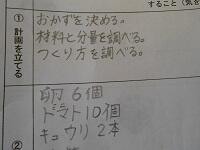 すること(気を
① 計画を立てる
おかずを決める。
材料と分量を調べる。
つくり方を調べる。
卵 6個
トマト10個
キュウリ 2本
②